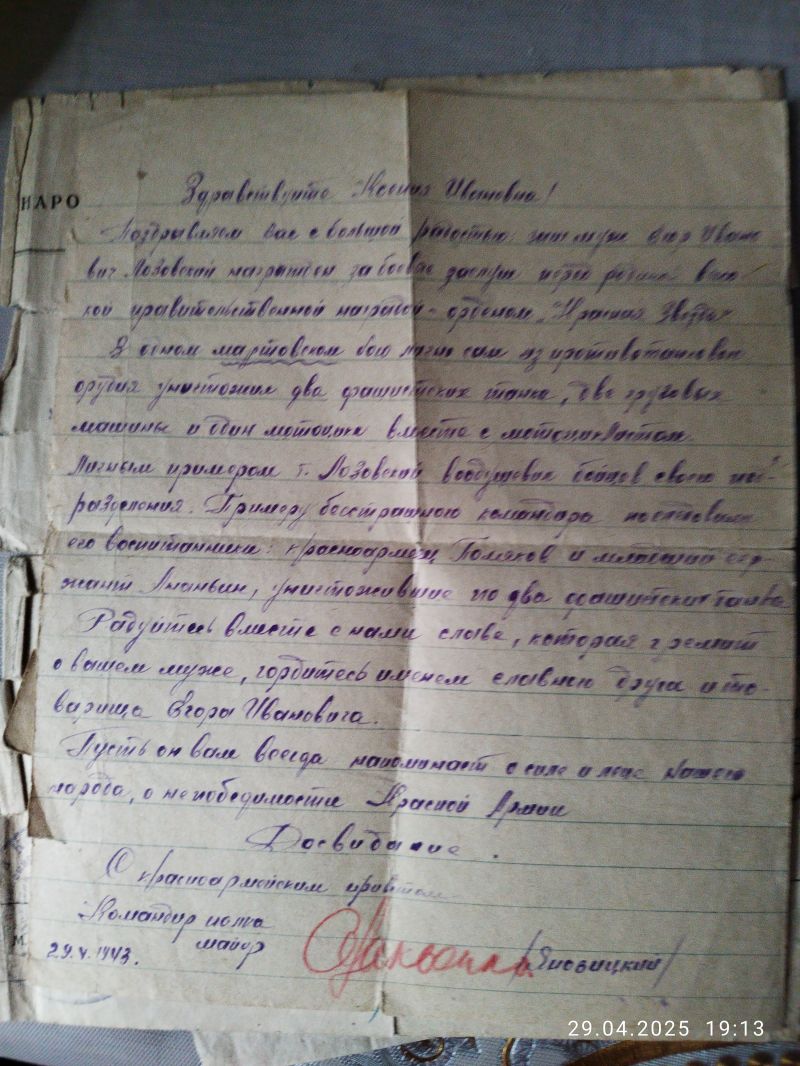 НАРО
Здравствуйте Ксения Ивановна!
Поздравляем Вас с большой радостью: ваш муж Егор Ивано
вич Лозовский награжден за боевые заслуги перед родиной высо
кой правительственной наградой - орденом „Красная Звезда"
В одном мартовском бою лично сам из противотанковой
орудия уничтожил два фашистских танка, две грузовых
машины и один мотоцикл вместе с мотоциклистом.
Личным примером т. Лозовский воодушевил бойцов своего под-
разделения. Примеру бесстрашного командира последовали
его воспитанники: красноармеец Поляков и младший сер-
жант Ананьин, уничтожившие по два фашистских танка
Радуйтесь вместе с нами славе, которая гремит
о вашем муже, гордитесь именем славного друга и то-
варища Егора Ивановича.
Пусть он вам всегда напоминает о силе и мощи нашего
народа, о непобедимости Красной Армии
Досвидание.
С красноармейским приветом
Командир полка
майор
29.V.1943.
29.04.2025 19:13